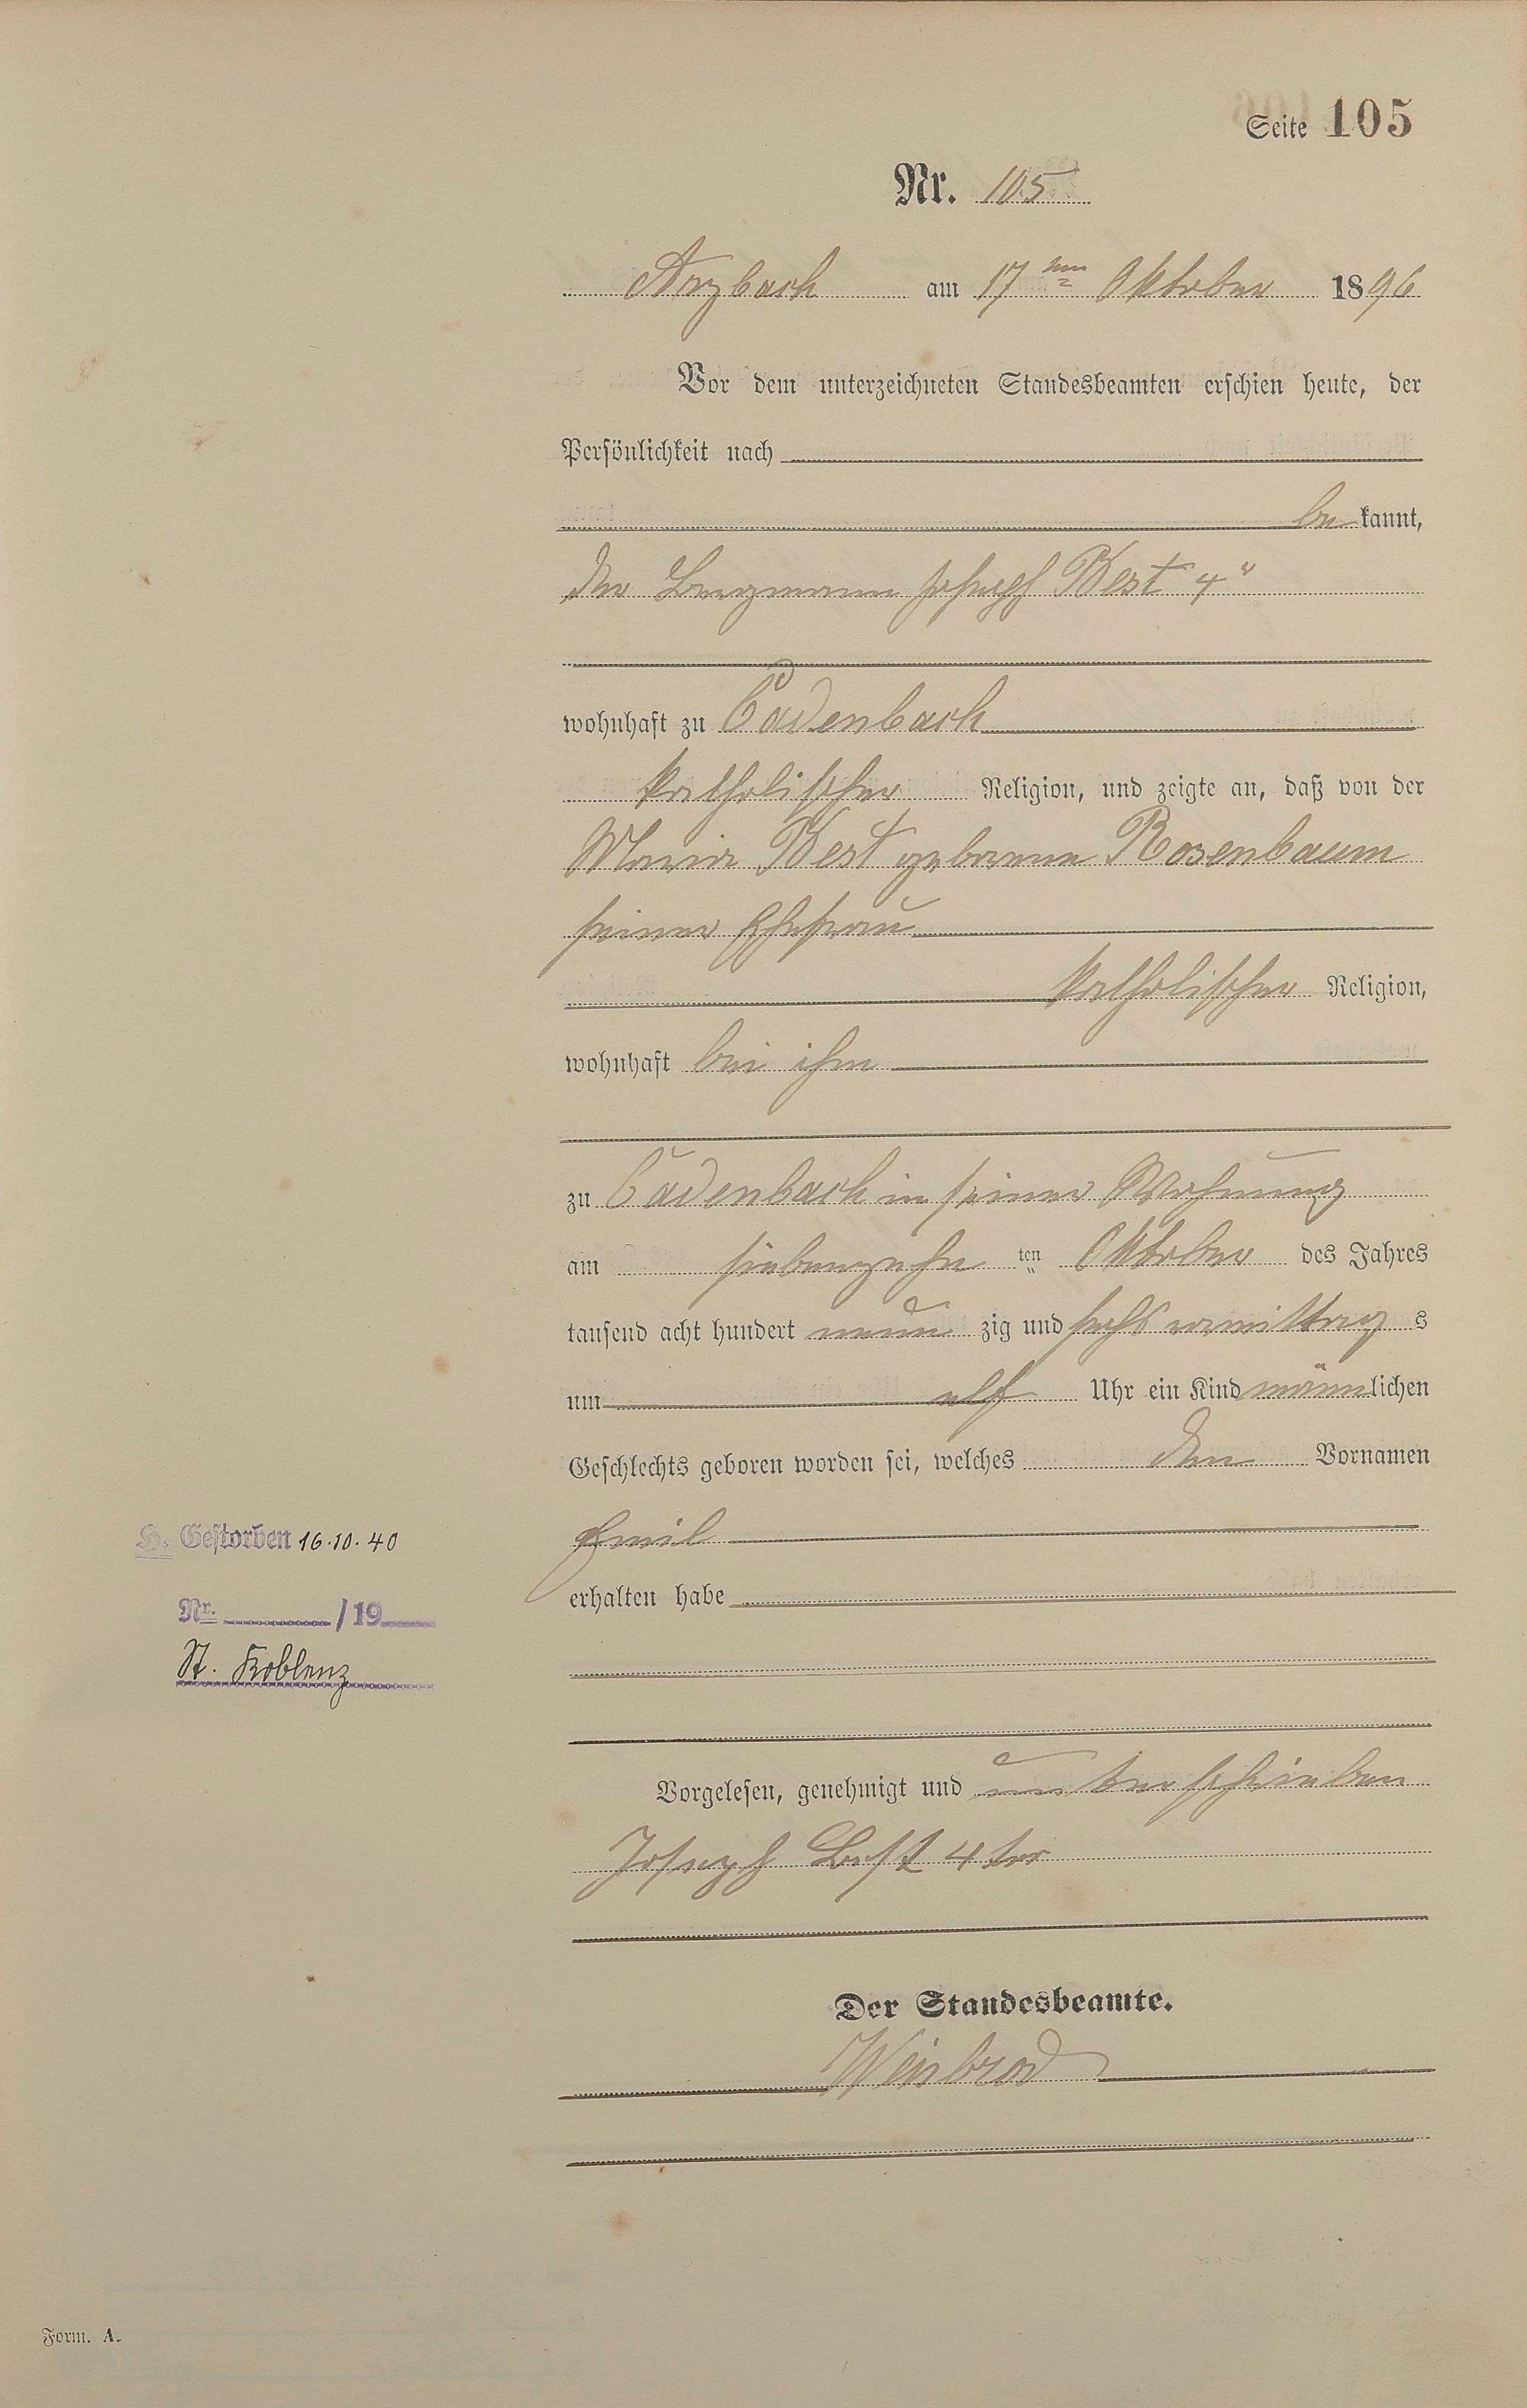 Seite 105
Nr. 105
Arzbach am 17ten Oktober 1896
Vor dem unterzeichneten Standesbeamten erschien heute, der
Persönlichkeit nach
bekannt,
der Bergmann Joseph Best 4"
wohnhaft zu Cadenbach
katholischer Religion, und zeigte an, daß von der
Maria Best geborene Rosenbaum
seiner Ehefrau
katholischer Religion,
wohnhaft bei ihm
zu Cadenbach in seiner Wohnung
am siebenzehn ten Oktober des Jahres
tausend acht hundert neun zig und sechs vormittag s
um elf Uhr ein Kind männlichen
Geschlechts geboren worden sei, welches den Vornamen
Emil
erhalten habe
H. Gestorben 16.10.40
Nr. /19
St. Koblenz
Vorgelesen, genehmigt und unterschrieben
Joseph Best 4ter
Der Standesbeamte.
Weisbrod
Form. A.